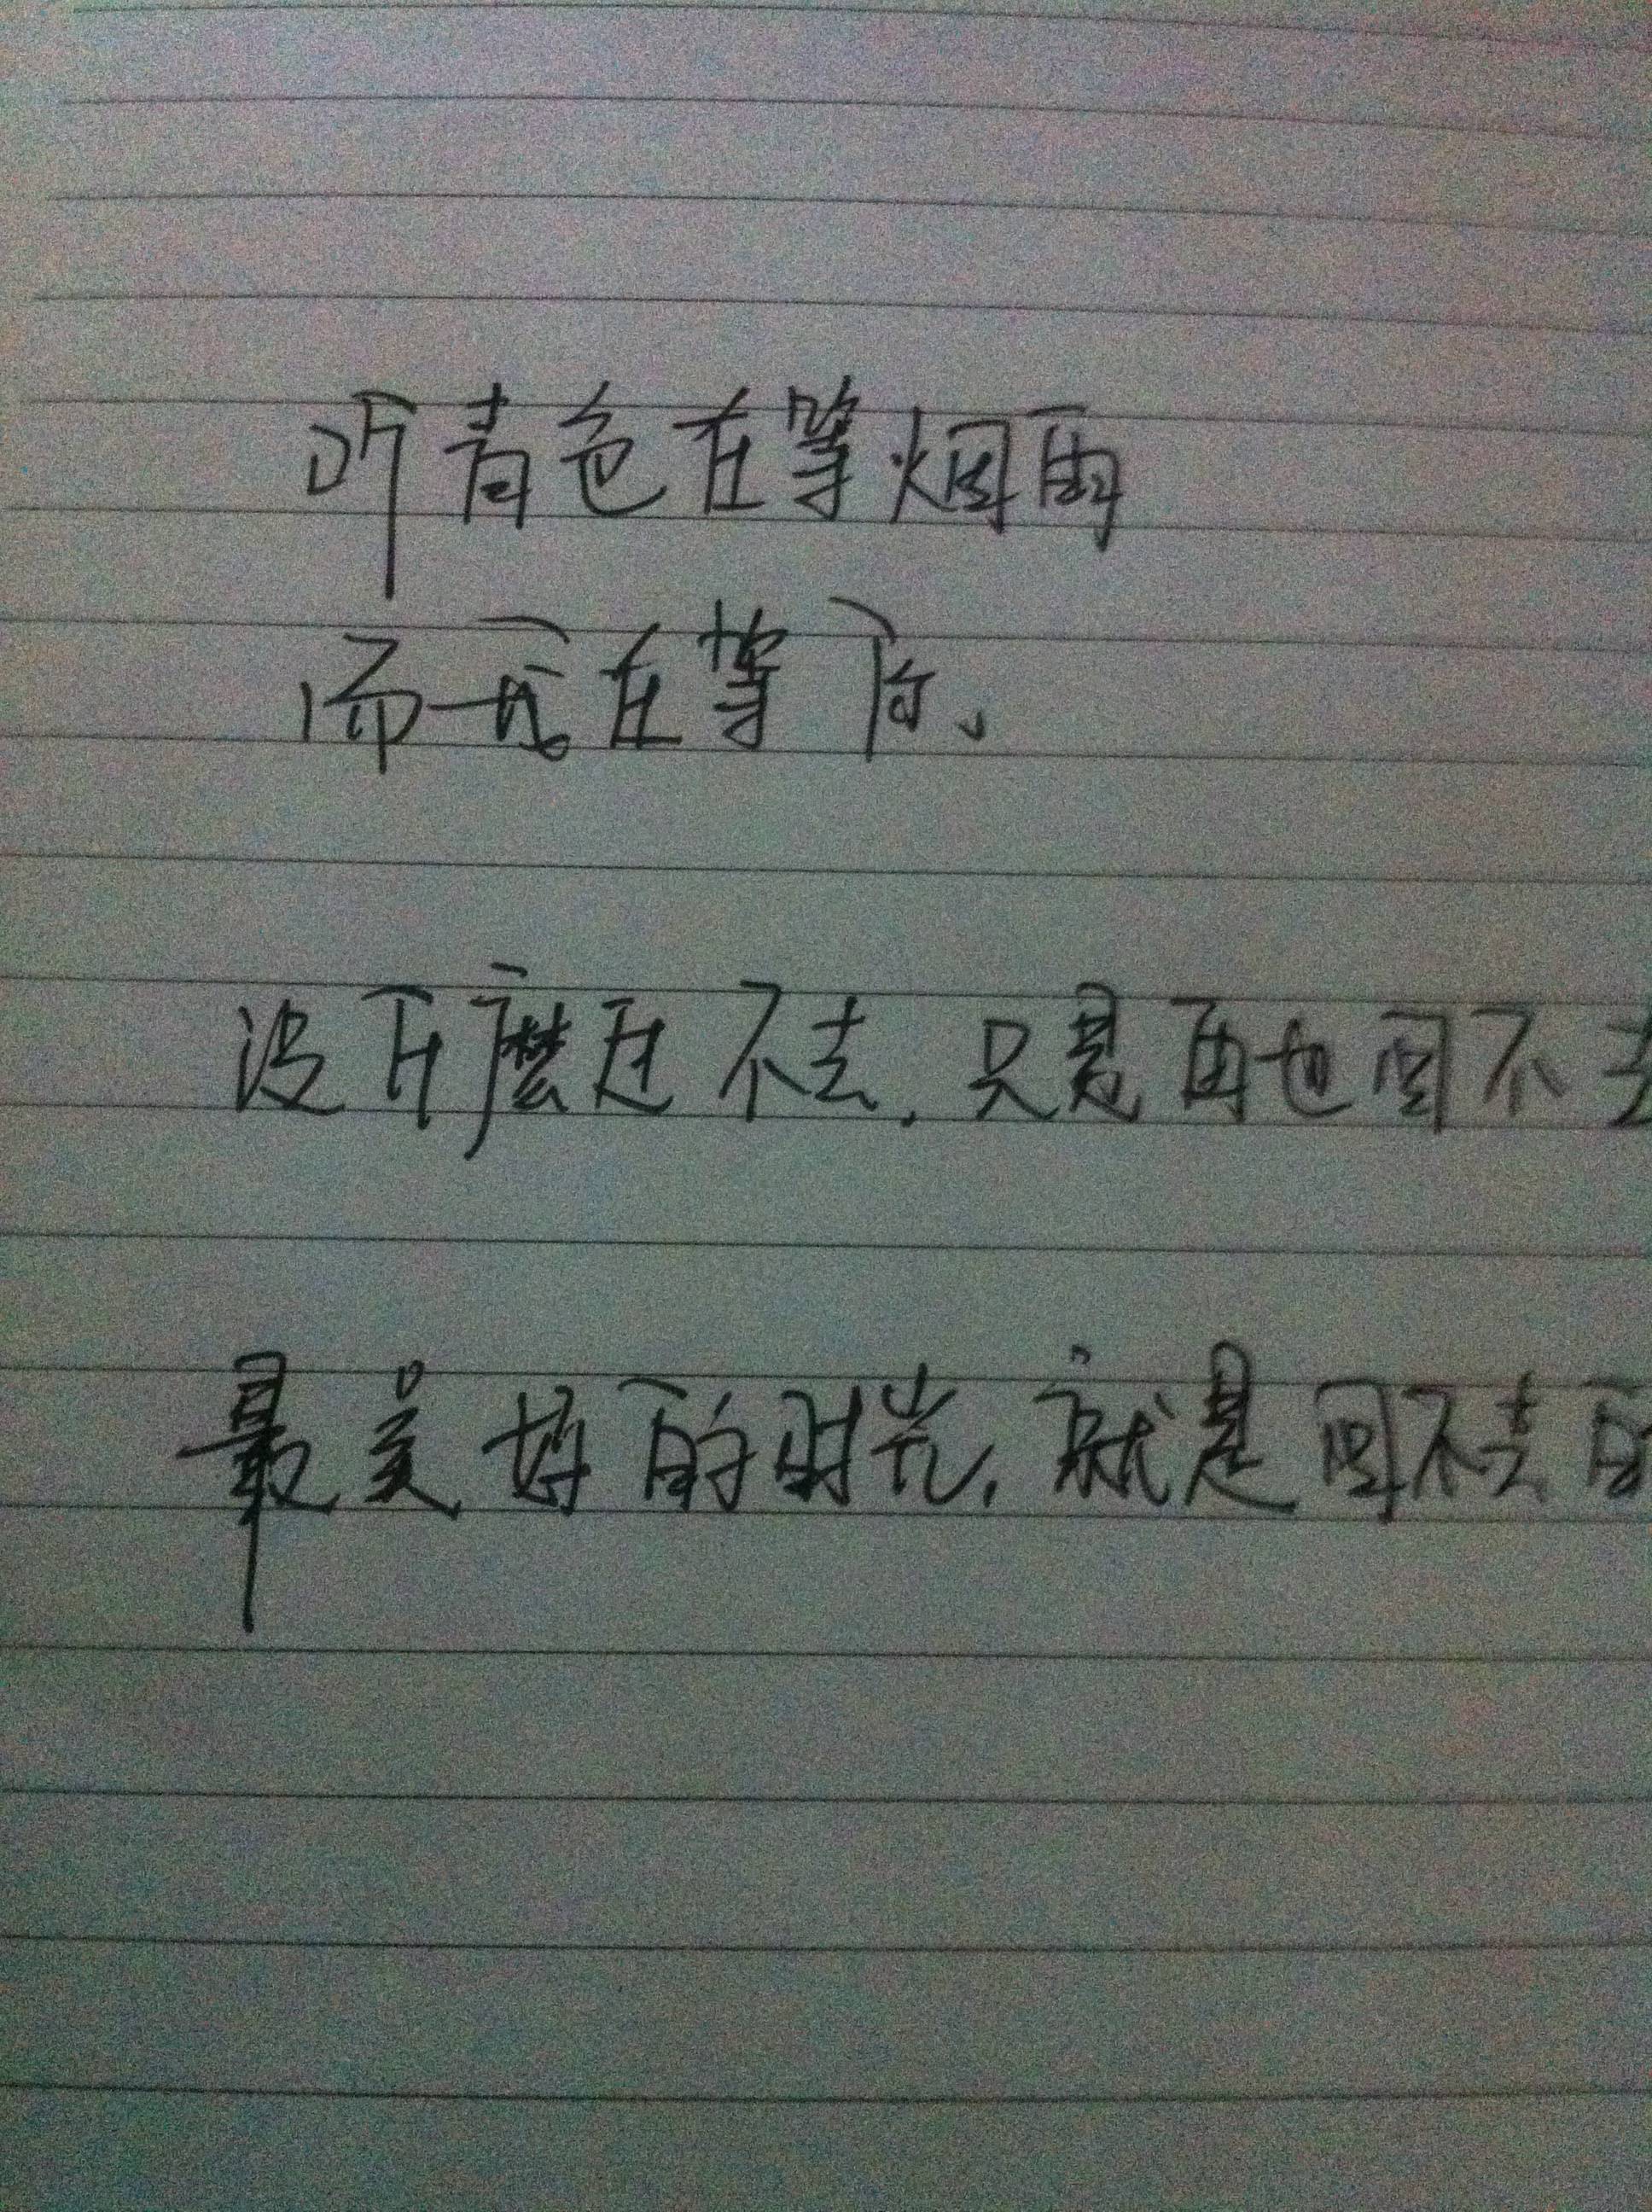 听青色在等烟雨
而我在等你、
没什麽过不去,只是再也回不去
最美好的时光,就是回不去的